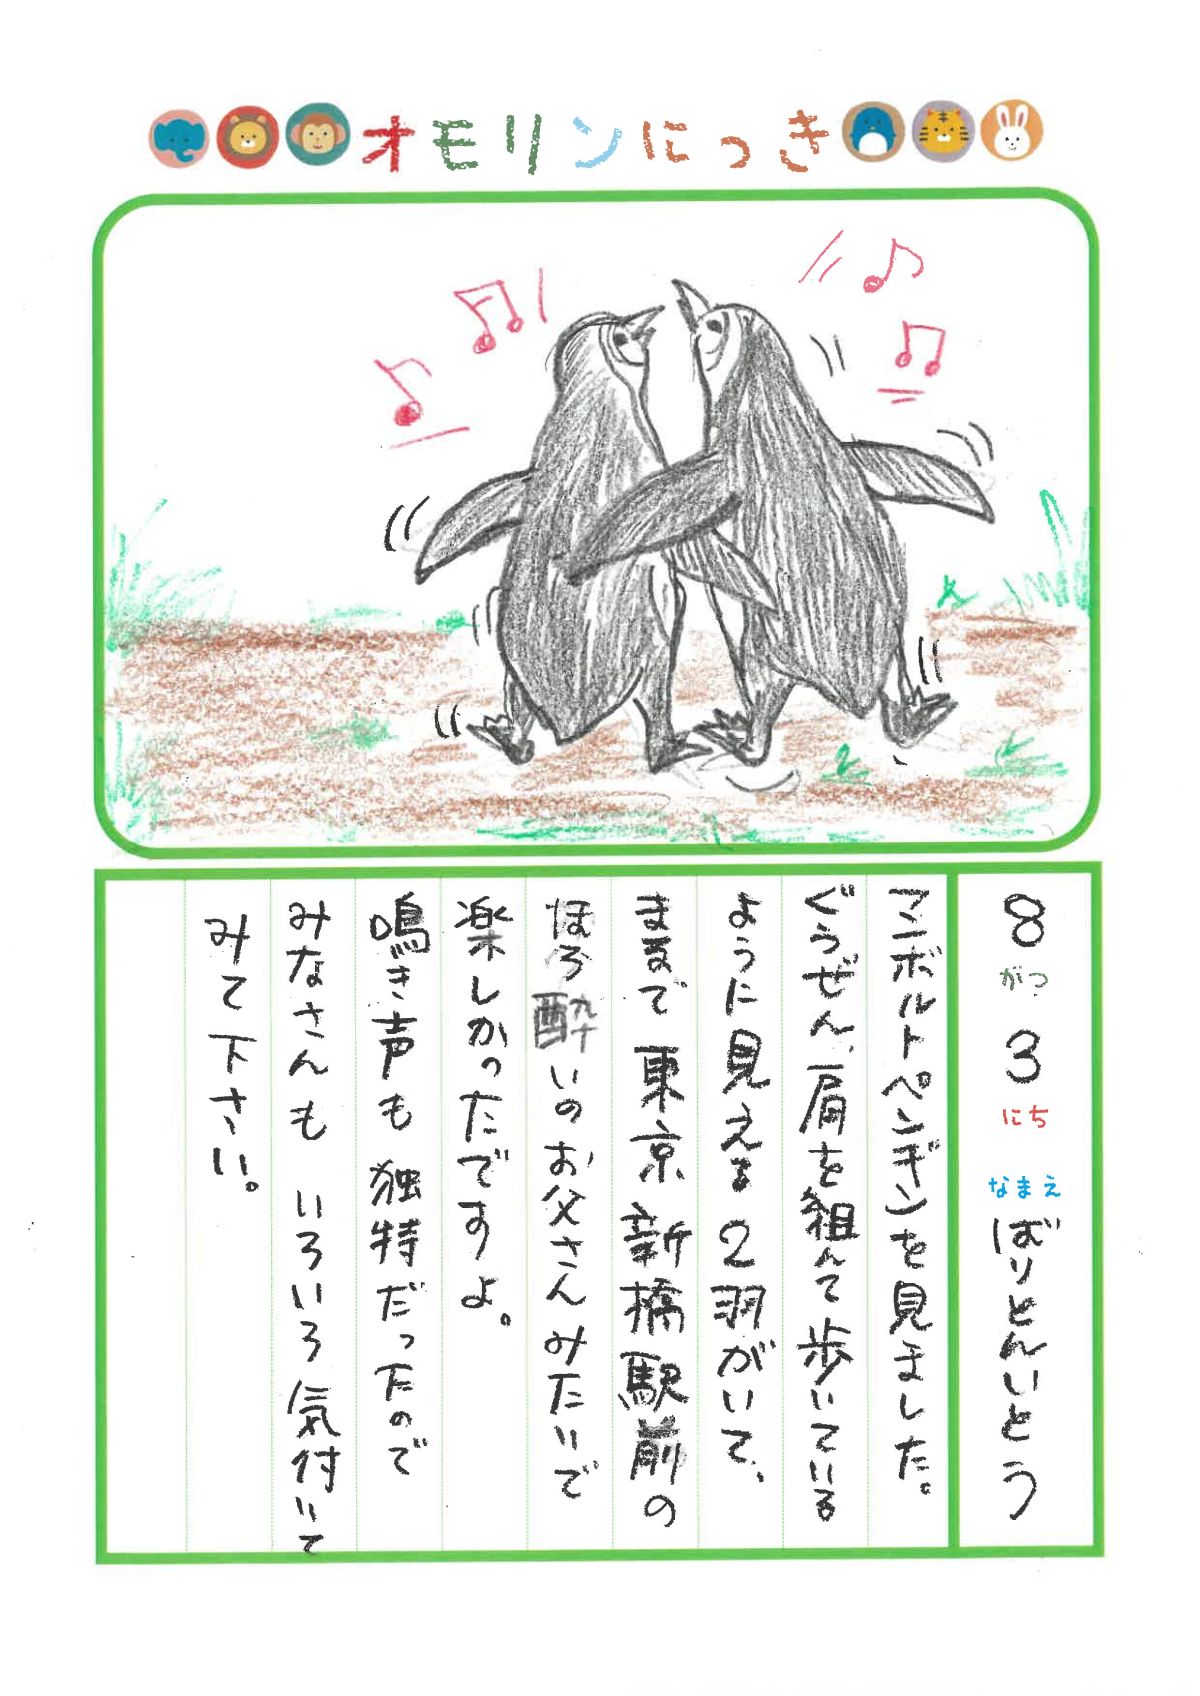 オモリンにっき
8がつ3にち なまえ ばりとんいとう
フンボルトペンギンを見ました。
ぐうぜん、肩を組んで歩いている
ように見える2羽がいて、
まるで東京新橋駅前の
ほろ酔いのお父さんみたいで
楽しかったですよ。
鳴き声も独特だったので
みなさんもいろいろ気付いて
みて下さい。